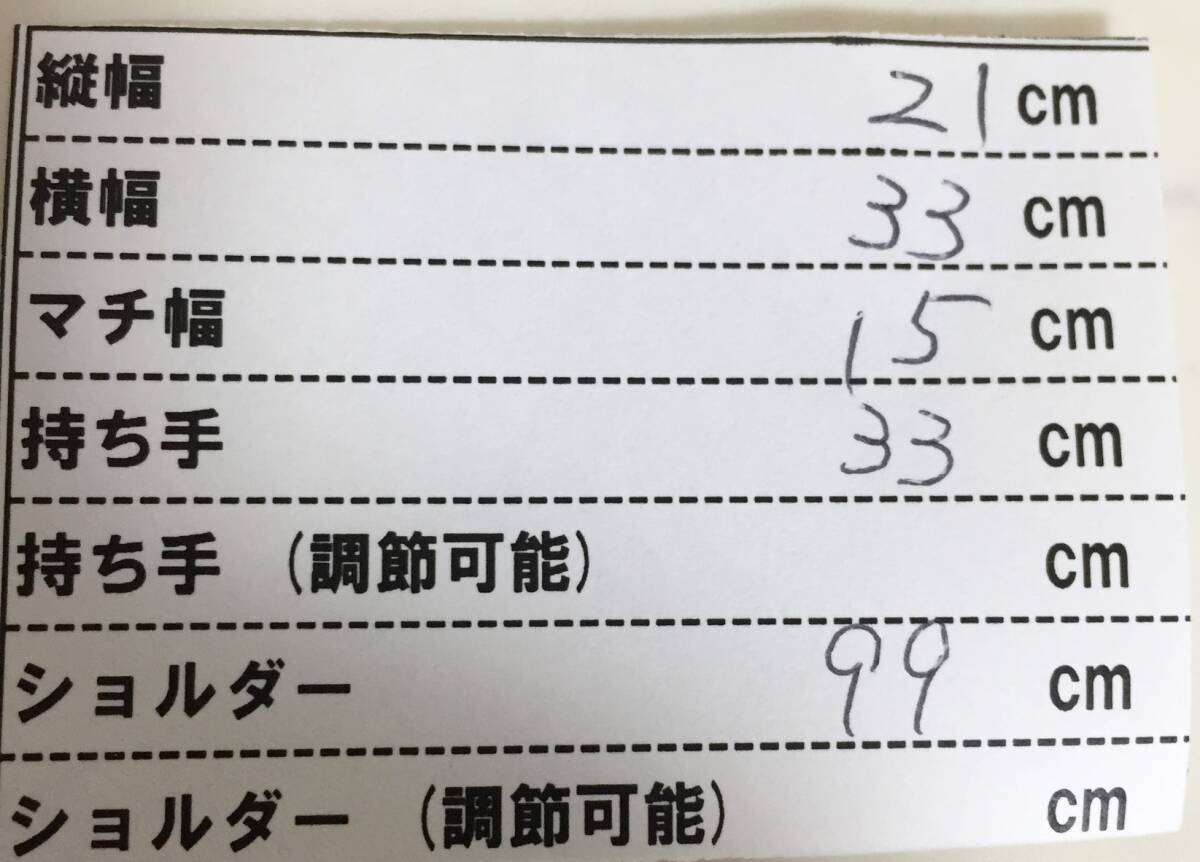 縦幅 21 cm
横幅 33 cm
マチ幅 15 cm
持ち手 33 cm
持ち手 (調節可能) cm
ショルダー 99 cm
ショルダー (調節可能) cm